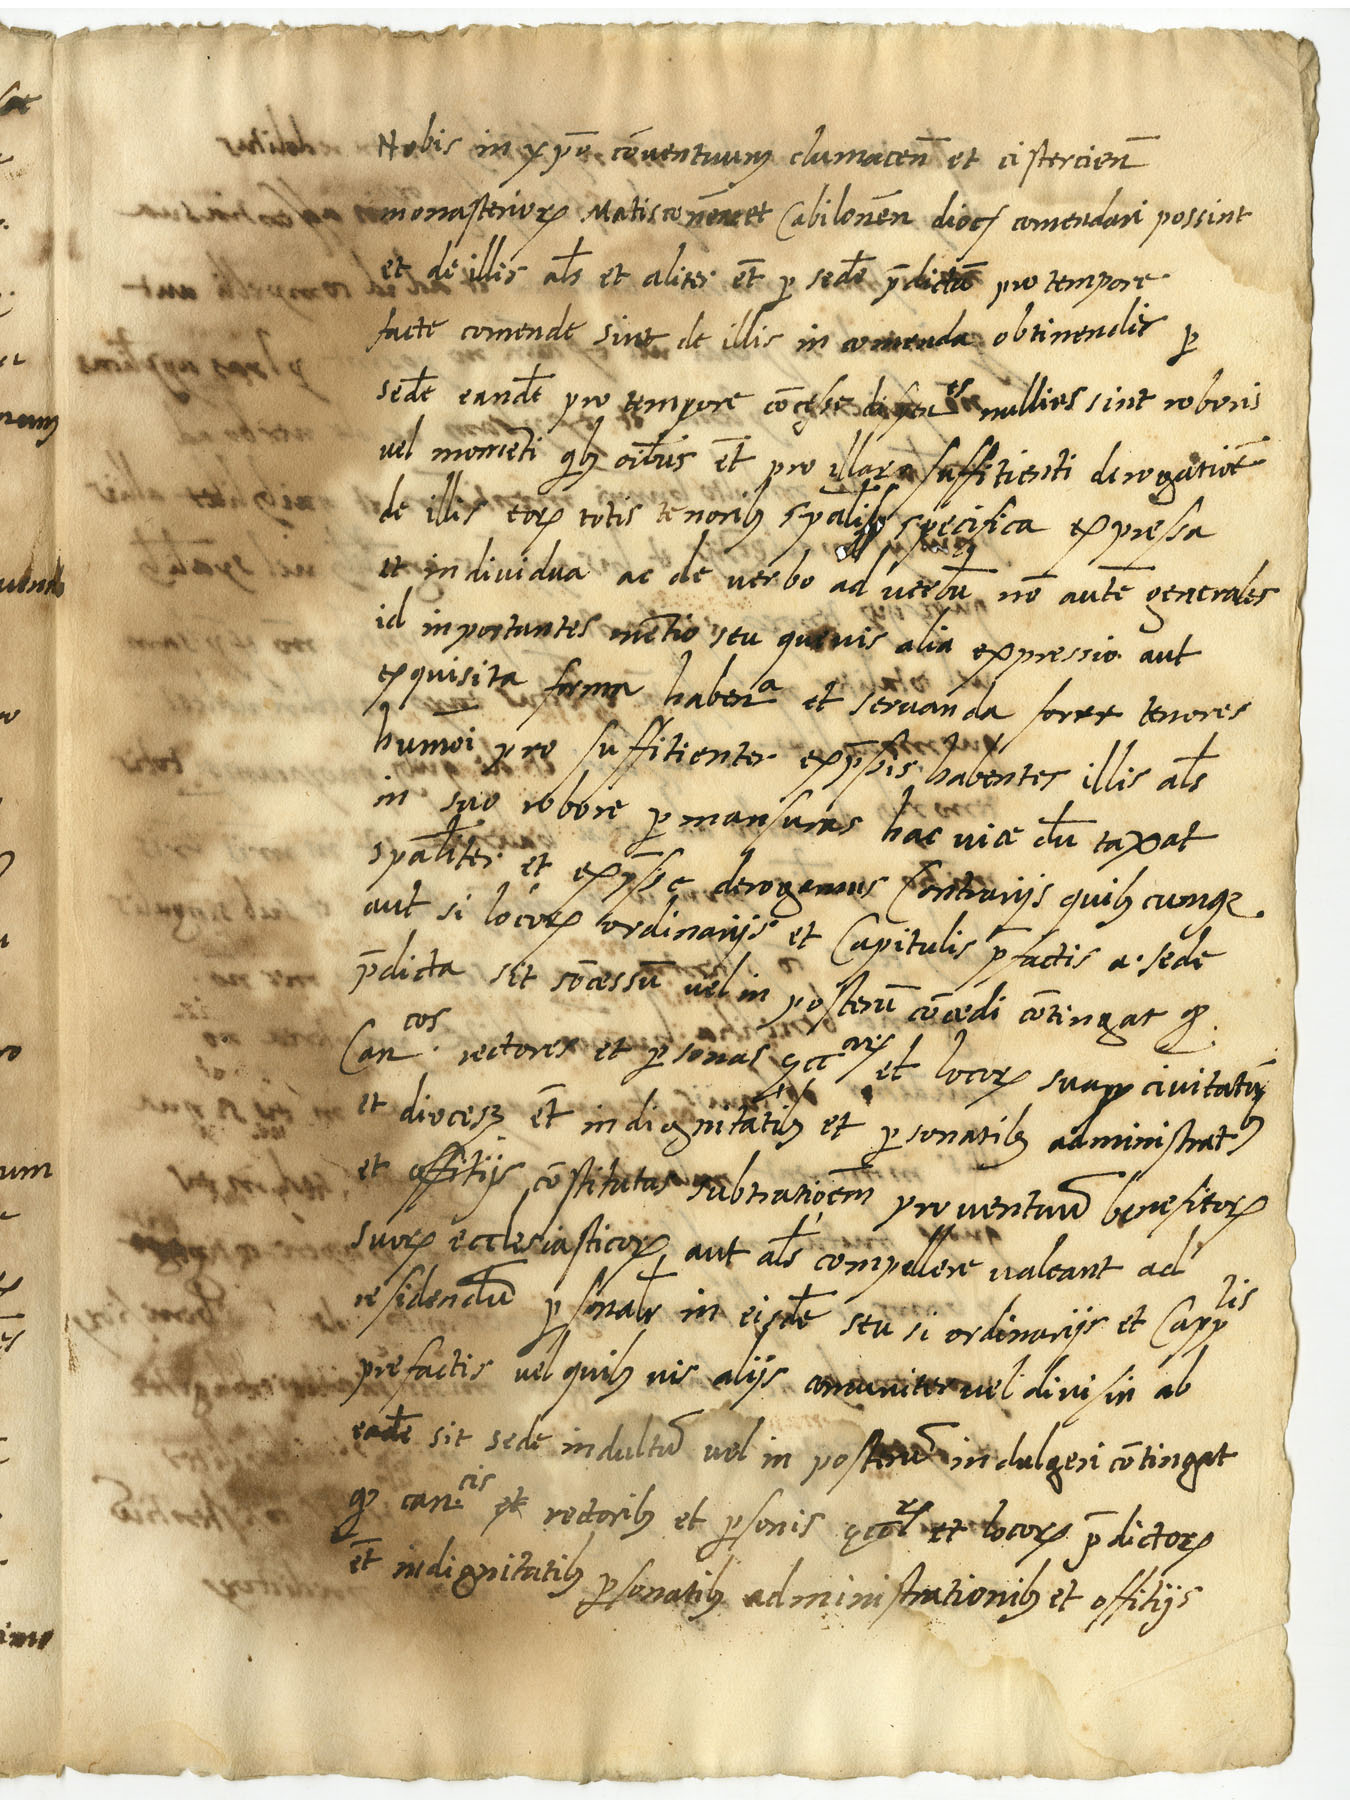 Nobis in xpō cōventuum clumacen̄ et cistercien̄
monasterior Matisconen̄ et Cabilonen̄ dioc comendari possint
et de illis als et aliter et̄ p sede p̄dictā pro tempore
facte comende sint de illis in comenda obtinendis p
sede eande pro tempore cōcesse dispen es nullies sint roboris
vel momēti qb oībus et̄ pro illar suffitienti derogatiōe
de illis eor totis tenorib spālib specifica expressa
et individua ac de verbo ad verbū nō autē generales
id inportantes mētio seu quevis alia expressio aut
exquisita forma haben a et servanda foret tenores
humōi pro suffitienter exp̄ssis habentes illis als
in suo robore p mansuras hac vice dū taxat
spāliter et exp̄sse derogamus Contrarijs quibcumq
aut si locor ordinarijs et Capitulis p̄factis a sede
p̄dicta sit cōcessū vel in posterū cōcedi cōtingat q
Can cos rectores et psonas et locor suar civitatū
et dioces et̄ indignitātib et psonatib administrat
et offitijs cōstitutas subtratioēm proventuū benefitior
suor ecclesiasticor aut als compellere valeant ad
residendū psonalr in eisde seu si ordinarijs et Capp lis
prefactis vel quibvis alijs comuniter vel divisin ab
eade sit sede indultū vel in posterū indulgeri cōtingat
q can cis et rectorib et psonis et locor p̄dictor
et̄ indignitatib psonatib administrationib et offitijs